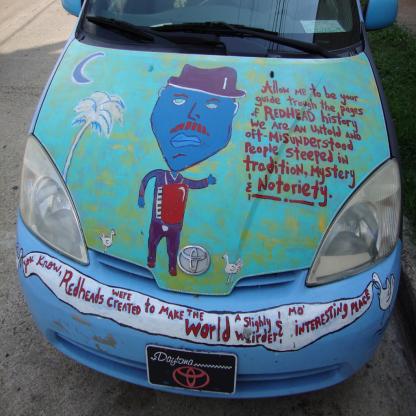 Allow me to be your
guide trough the pages
of REDHEAD history
We are an untold and
oft-misunderstood
People steeped in
tradition, Mystery
& Notoriety.
Know,
Redheads were
created to make the
World
a slightly
weirder!
& mo'
interesting place
Daytona